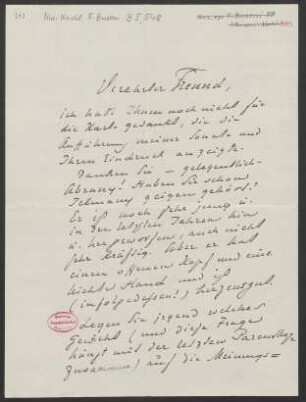 Mus. Nachl. F. Busoni B I, 548
Verehrter Freund,
ich habe Ihnen noch nicht für
die Karte gedankt, die die
Aufführung meiner Sonate und
Ihren Eindruck anzeigte.
Danken Sie – gelegentlich –
Haben Sie schon
Telmany geigen gehört?
Er ist noch sehr jung u.
in den letzten Jahren hin
u. her geworfen, auch nicht
sehr kräftig. Aber er hat
einen offenen Kopf und eine
leichte Hand und ist
(infolgedessen!) herzensgut.
Legen Sie irgend welches
Gewicht (und diese Frage
hängt mit der letzten
zusammen) auf die Meinungs=